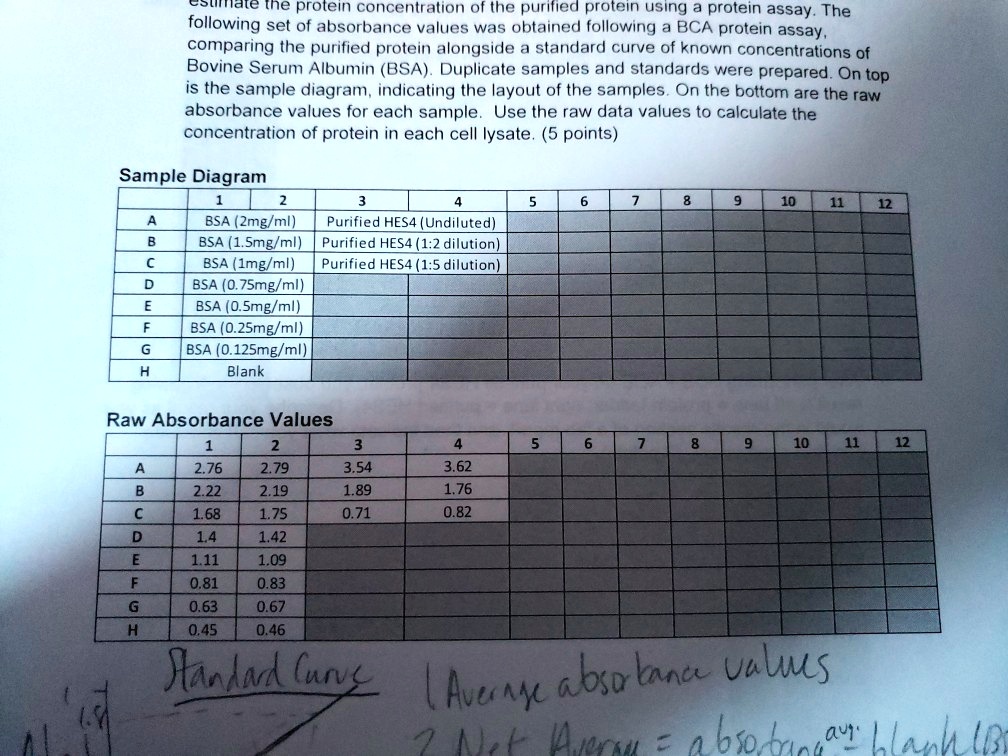 estimate the protein concentration of the purified protein using a protein assay. The
following set of absorbance values was obtained following a BCA protein assay,
comparing the purified protein alongside a standard curve of known concentrations of
Bovine Serum Albumin (BSA). Duplicate samples and standards were prepared. On top
is the sample diagram, indicating the layout of the samples. On the bottom are the raw
absorbance values for each sample. Use the raw data values to calculate the
concentration of protein in each cell lysate. (5 points)
Sample Diagram
1 2 3 4 5 6 7 8 9 10 11 12
A BSA (2mg/ml) Purified HES4 (Undiluted)
B BSA (1.5mg/ml) Purified HES4 (1:2 dilution)
C BSA (1mg/ml) Purified HES4 (1:5 dilution)
D BSA (0.75mg/ml)
E BSA (0.5mg/ml)
F BSA (0.25mg/ml)
G BSA (0.125mg/ml)
H Blank
Raw Absorbance Values
1 2 3 4 5 6 7 8 9 10 11 12
A 2.76 2.79 3.54 3.62
B 2.22 2.19 1.89 1.76
C 1.68 1.75 0.71 0.82
D 1.4 1.42
E 1.11 1.09
F 0.81 0.83
G 0.63 0.67
H 0.45 0.46
Standard Curve
1 Average absorbance values
2 Net Average = absorbance avg. - blank